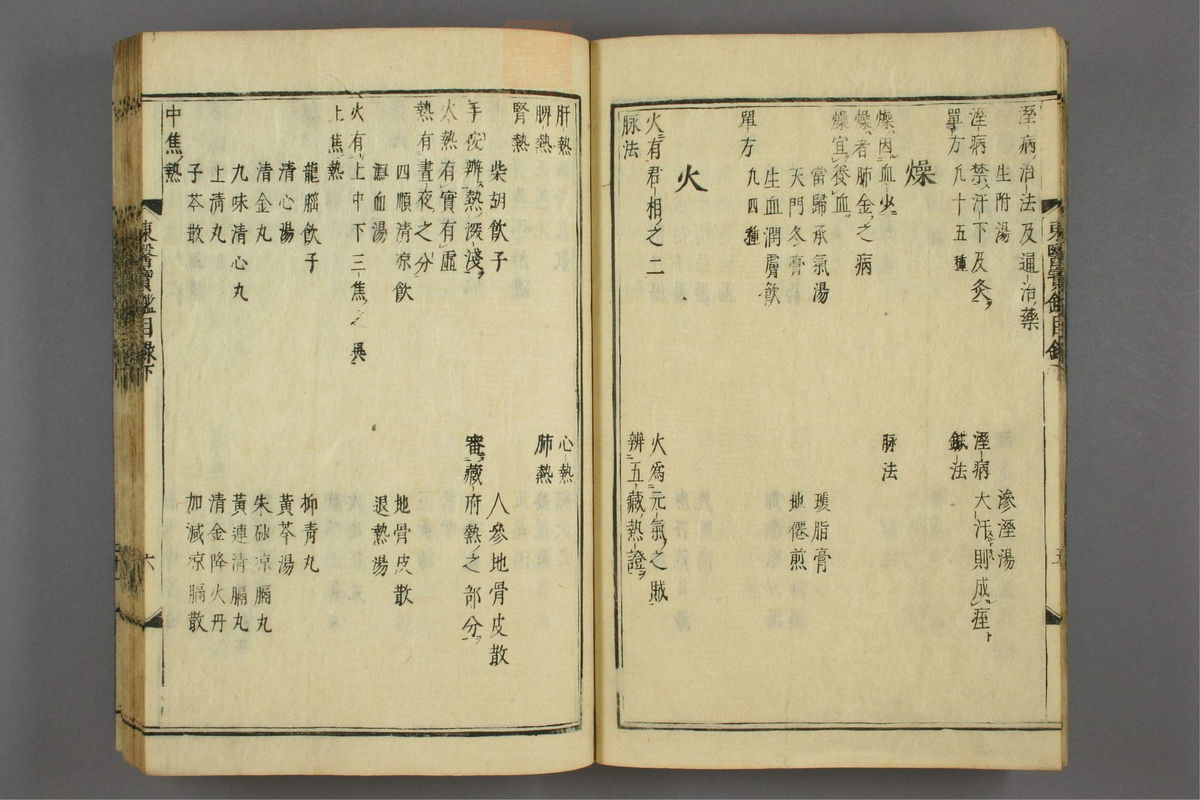 溼病治法及通治藥
生附湯
滲溼湯
溼病禁汗下及灸
溼病大汗則成痓
單方
凡十五種
鍼法
燥
燥因血少
脉法
燥者肺金之病
燥宜養血
當歸承氣湯
瓊脂膏
天門冬膏
地僊煎
生血潤膚飮
單方
凡四種
火
火有君相之二
火爲元氣之賊
脉法
辨五藏熱證
東醫寶鑑目錄下
五
肝熱
心熱
脾熱
肺熱
腎熱
柴胡飮子
人參地骨皮散
手按辨熱深淺
審藏府熱之部分
火熱有實有虛
熱有晝夜之分
四順清凉飮
地骨皮散
退熱湯
火有上中下三焦之異
上焦熱
龍腦飮子
抑青丸
清心湯
黃芩湯
清金丸
朱砂凉膈丸
九味清心丸
黃連清膈丸
上清丸
清金降火丹
子芩散
加減凉膈散
中焦熱
東醫寶鑑目錄下
六